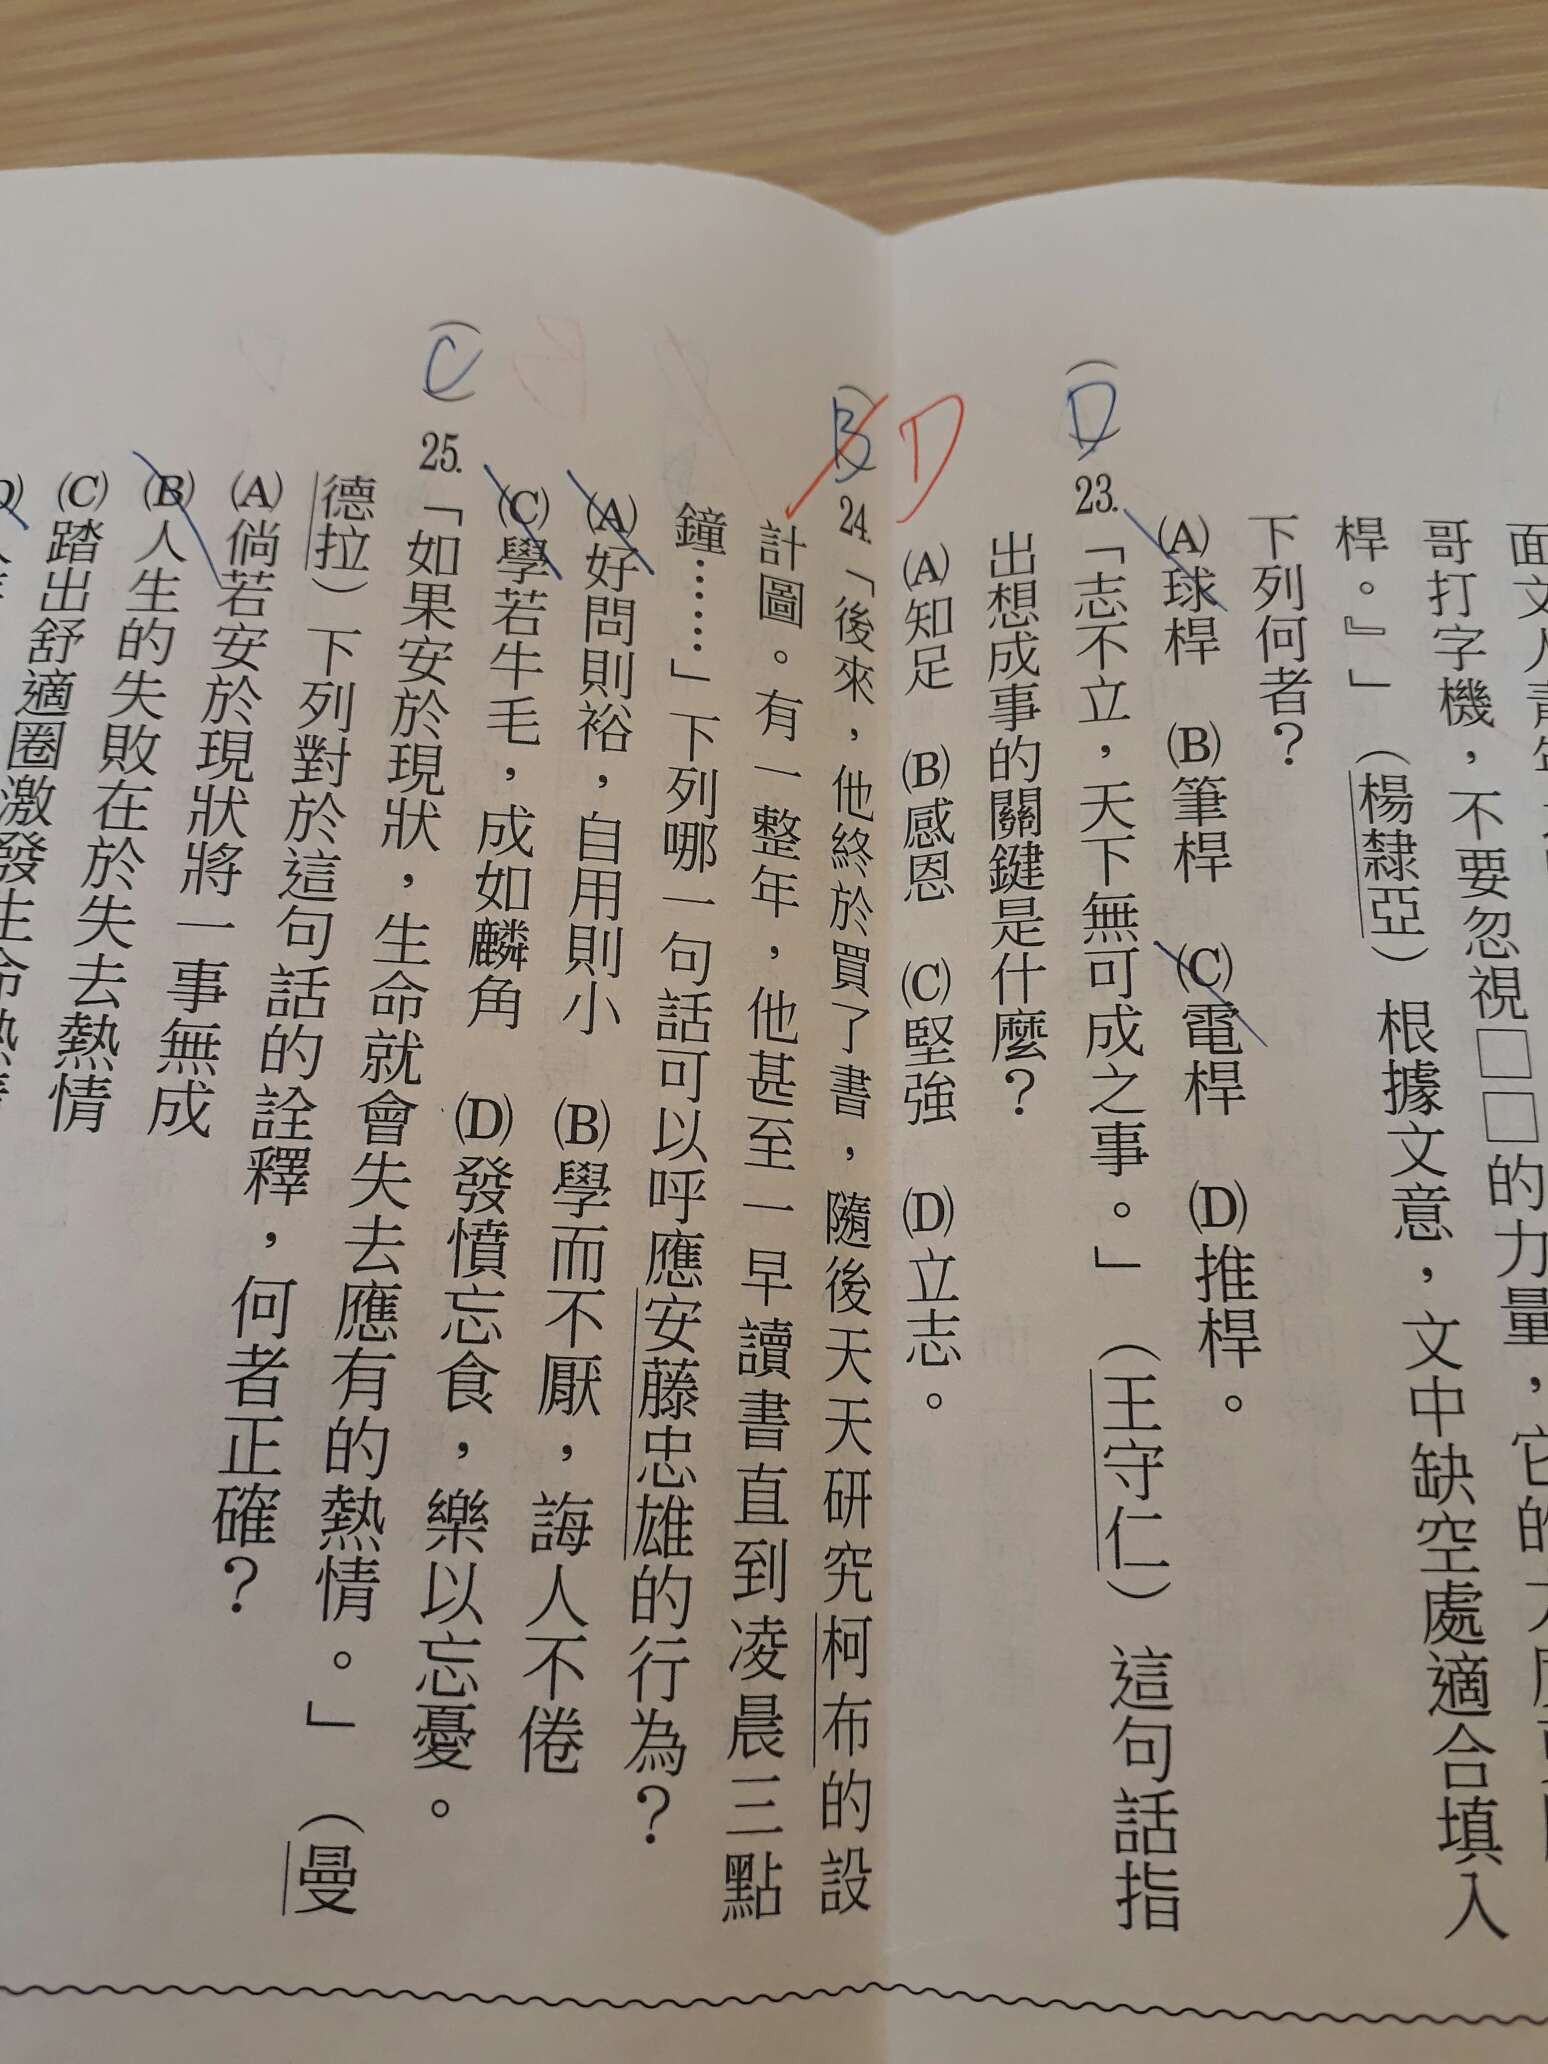 哥打字機，不要忽視□□的力量，它的
桿。』」（楊隸亞）根據文意，文中缺空處適合填入
下列何者？
(A)球桿　(B)筆桿　(C)電桿　(D)推桿。
(D) 23.「志不立，天下無可成之事。」（王守仁）這句話指
出想成事的關鍵是什麼？
(A)知足　(B)感恩　(C)堅強　(D)立志。
(B) D 24.「後來，他終於買了書，隨後天天研究柯布的設
計圖。有一整年，他甚至一早讀書直到凌晨三點
鐘……」下列哪一句話可以呼應安藤忠雄的行為？
(A)好問則裕，自用則小　(B)學而不厭，誨人不倦
(C)學若牛毛，成如麟角　(D)發憤忘食，樂以忘憂。
(C) 25.「如果安於現狀，生命就會失去應有的熱情。」（曼
德拉）下列對於這句話的詮釋，何者正確？
(A)倘若安於現狀將一事無成
(B)人生的失敗在於失去熱情
(C)踏出舒適圈激發生命熱情